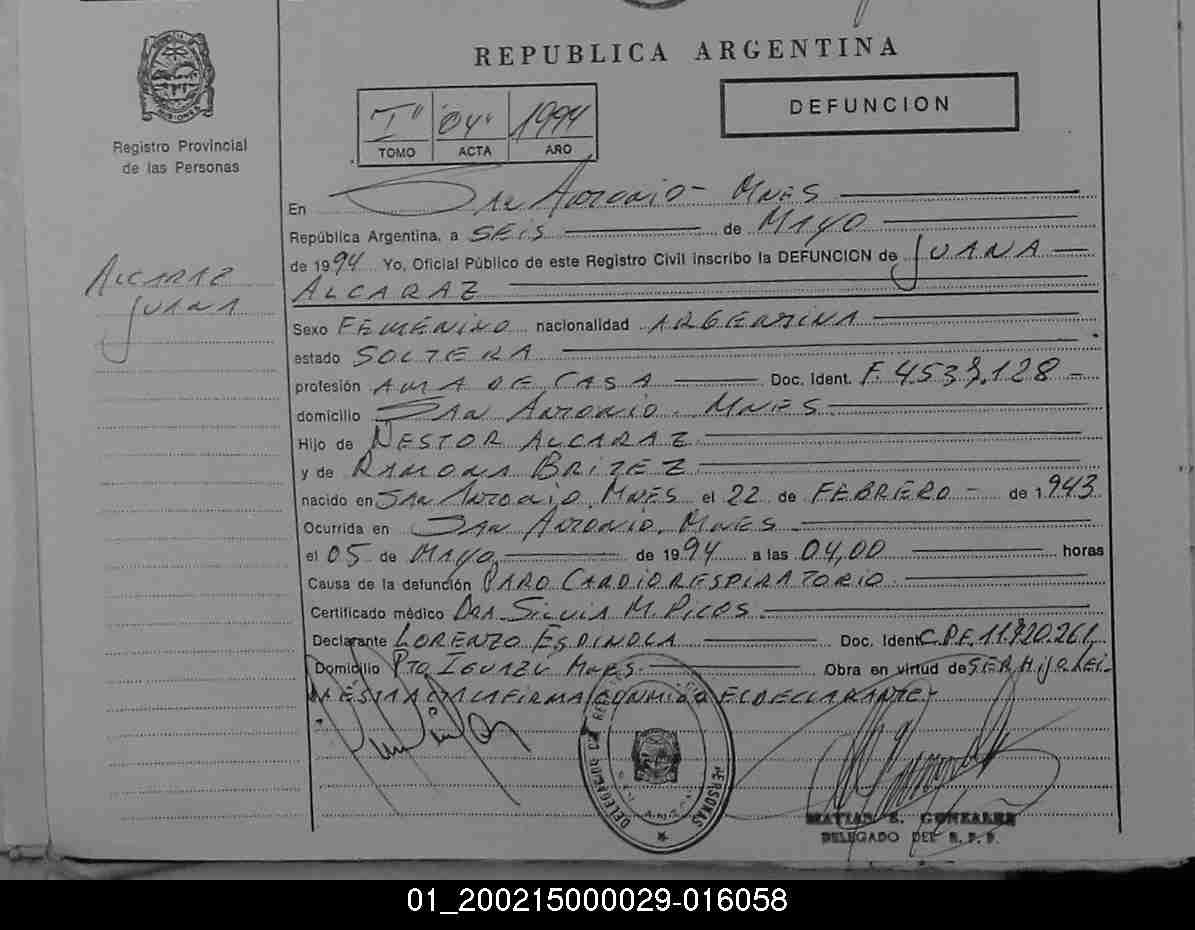 REPUBLICA ARGENTINA
MISIONES
Registro Provincial
de las Personas
Iº 04 1994
TOMO ACTA AÑO
DEFUNCION
En San Antonio - Mnes
República Argentina, a SEIS de MAYO
de 1994 Yo, Oficial Público de este Registro Civil inscribo la DEFUNCION de JUANA
ALCARAZ
ALCARAZ
JUANA
Sexo FEMENINO nacionalidad ARGENTINA
estado SOLTERA
profesión AMA DE CASA Doc. Ident. F. 4.539.128 -
domicilio SAN ANTONIO. MNES.
Hijo de NESTOR ALCARAZ
y de RAMONA BRITEZ
nacido en SAN ANTONIO, MNES el 22 de FEBRERO - de 1.943
Ocurrida en SAN ANTONIO, MNES
el 05 de MAYO, de 1994 a las 04,00 horas
Causa de la defunción PARO CARDIORRESPIRATORIO
Certificado médico DRA. SILVIA M. PICOS
Declarante LORENZO ESPINOLA Doc. Ident. C.P.F. 11.920.261
Domicilio PTO IGUAZU MNES. Obra en virtud de SER HIJO. LEI-
DA ÉSTA ACTA LA FIRMA CONMIGO EL DECLARANTE-
DELEGACION DEL REG PERSONAS
MATIAS E. GONZALEZ
DELEGADO DEL R. P. P.
01_200215000029-016058